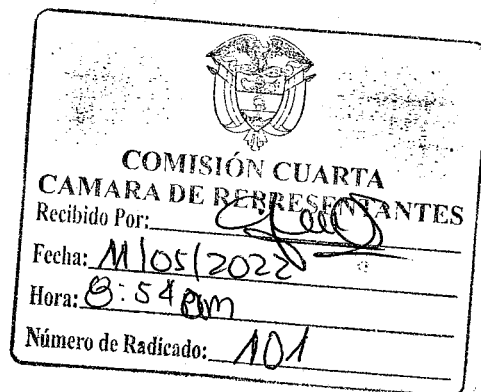 COMISIÓN CUARTA
CAMARA DE REPRESENTANTES
Recibido Por:
Fecha: 11/05/2022
Hora: 8:54
Número de Radicado: 101